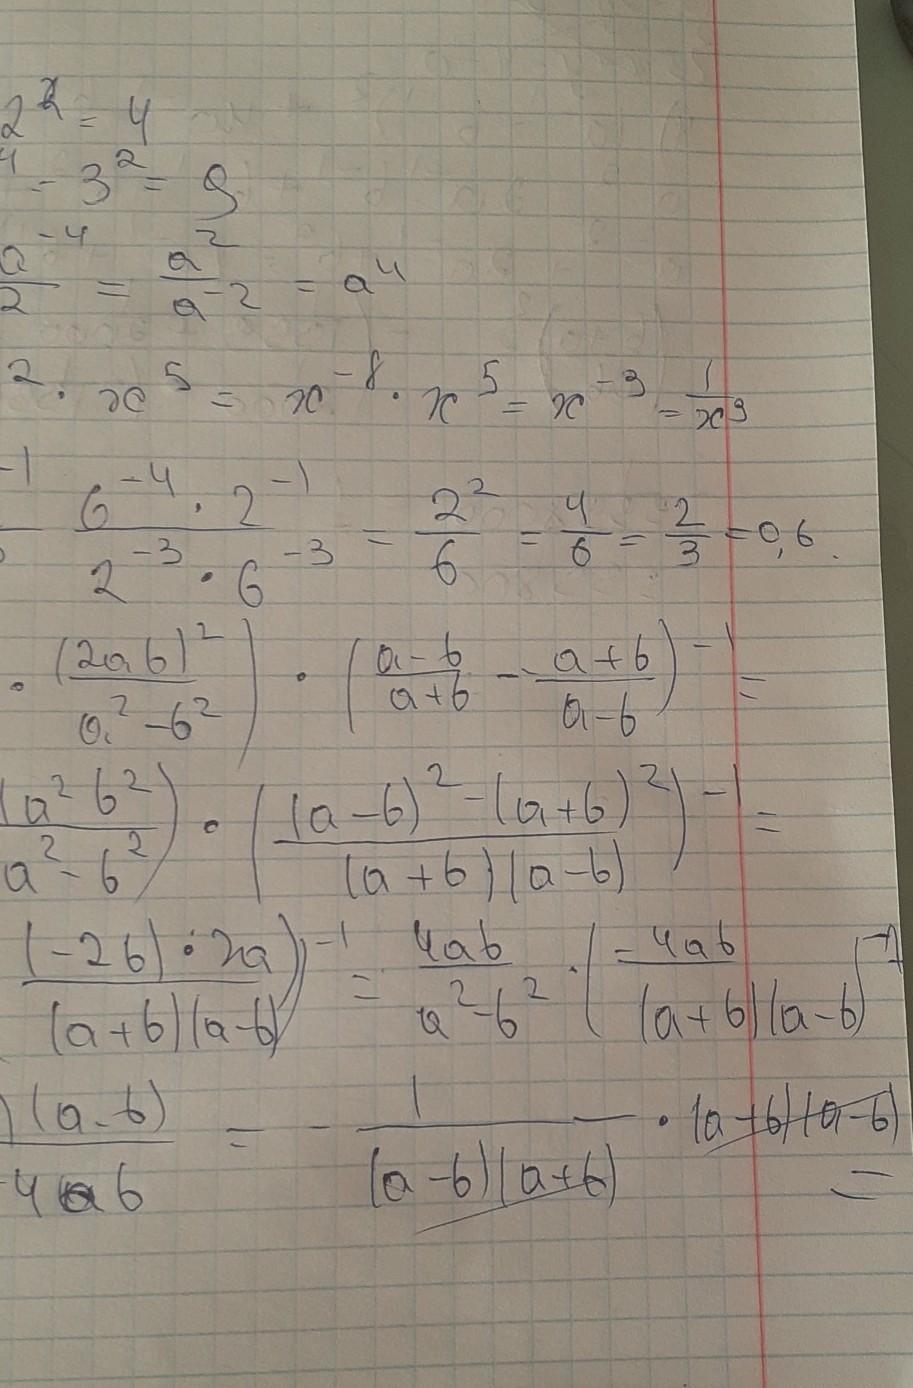 2² = 4
⁴ - 3² = 9
a⁻⁴/2 = a²/a⁻² = a⁴
² · x⁵ = x⁻⁸ · x⁵ = x⁻³ = 1/x³
⁻¹ (6⁻⁴ · 2⁻¹)/(2⁻³ · 6⁻³) = 2²/6 = 4/6 = 2/3 = 0,6.
· (2ab)²/(a² - b²)) · ((a - b)/(a + b) - (a + b)/(a - b))⁻¹ =
(a² b²)/(a² - b²)) · (((a - b)² - (a + b)²)/((a + b)(a - b)))⁻¹ =
((-2b) · 2a)/((a + b)(a - b)))⁻¹ = 4ab/(a² - b²) · (-4ab/((a + b)(a - b)))⁻¹
)(a - b)/4ab = - 1/((a - b)(a + b)) · (a + b)(a - b) =